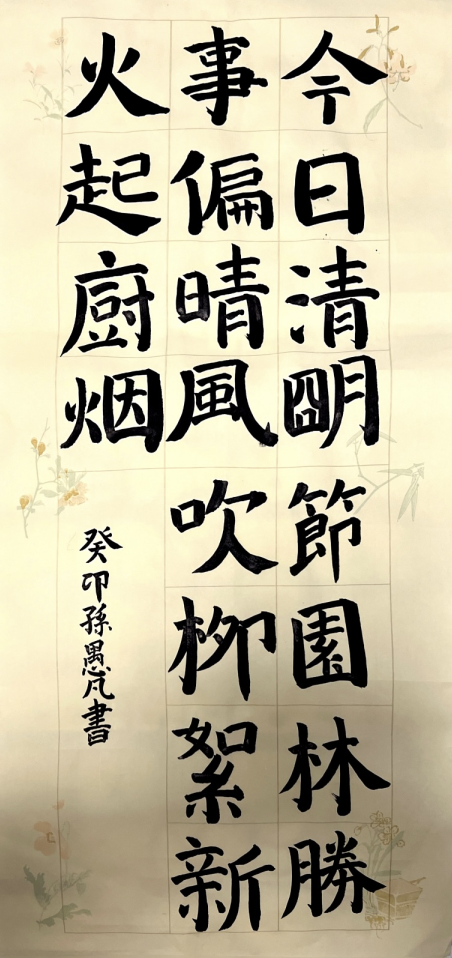 今日清明節園林勝
事偏晴風吹柳絮新
火起厨烟
癸卯孫愚凡書